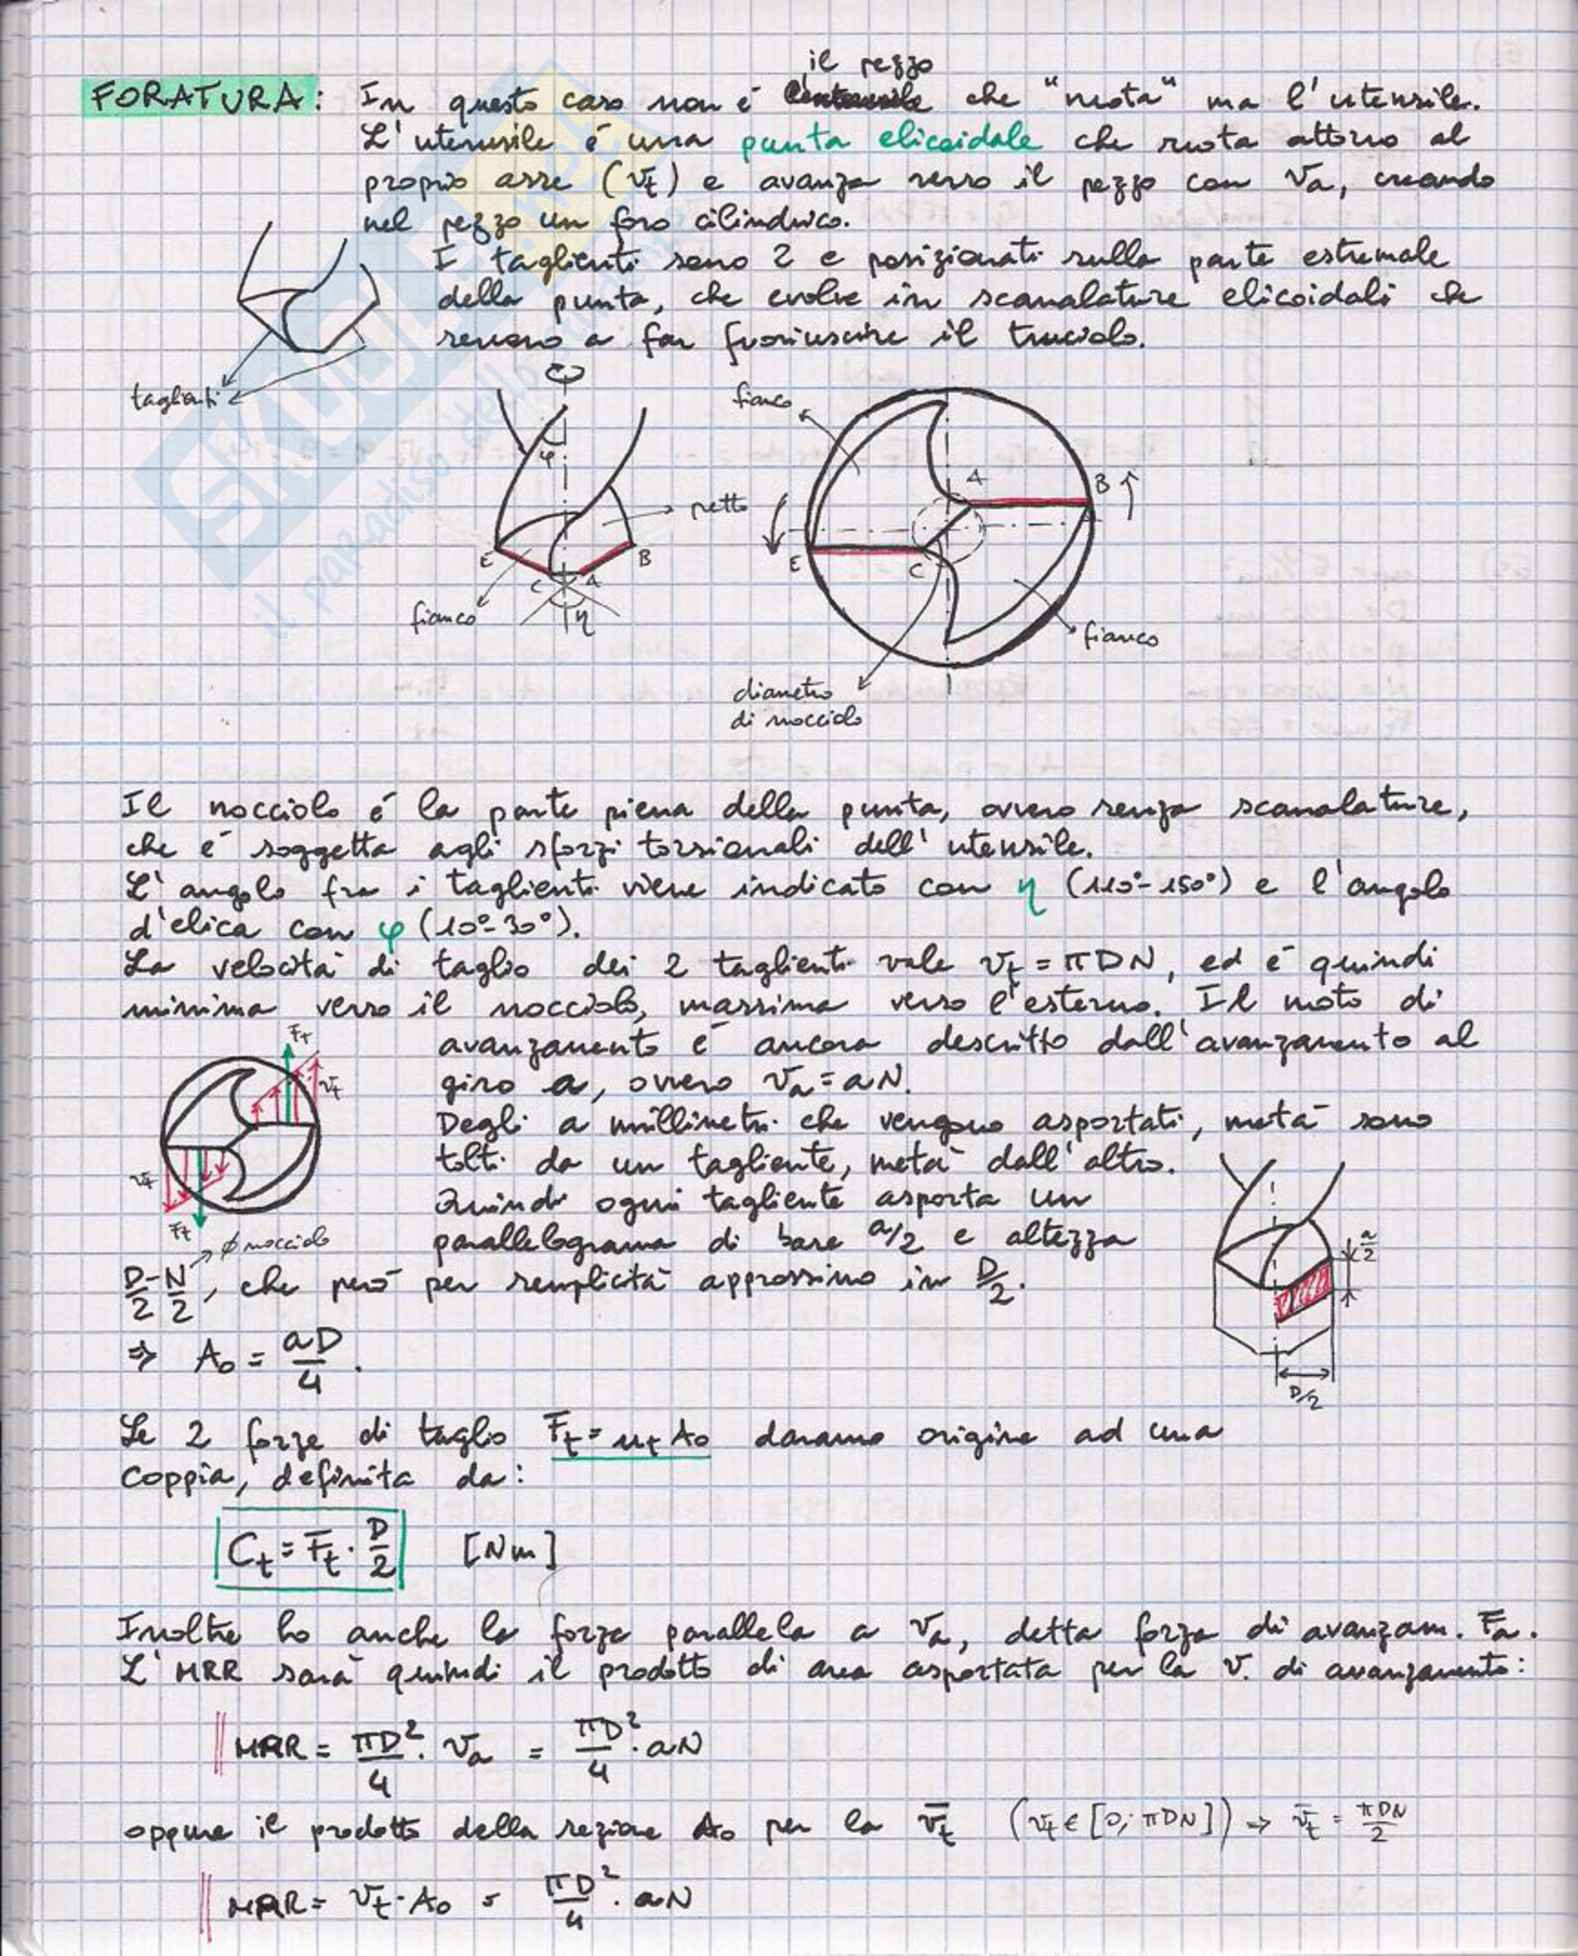 il pezzo
FORATURA: In questo caso non é che "ruota" ma l'utensile.
L'utensile é una punta elicoidale che ruota attorno al
proprio asse (vt) e avanza verso il pezzo con va, creando
nel pezzo un foro cilindrico.
I taglienti sono 2 e posizionati sulla parte estremale
della punta, che evolve in scanalature elicoidali che
servono a far fuoriuscire il truciolo.
taglienti
φ
petto
E
C
A
B
fianco
η
fianco
A
B
E
C
fianco
diametro
di nocciolo
Il nocciolo é la parte piena della punta, ovvero senza scanalature,
che é soggetta agli sforzi torsionali dell'utensile.
L'angolo fra i taglienti viene indicato con η (110°-150°) e l'angolo
d'elica con φ (10°-30°).
La velocità di taglio dei 2 taglienti vale vt = πDN, ed é quindi
minima verso il nocciolo, massima verso l'esterno. Il moto di
avanzamento é ancora descritto dall'avanzamento al
giro a, ovvero va = aN.
Degli a millimetri che vengono asportati, metà sono
tolti da un tagliente, metà dall'altro.
Quindi ogni tagliente asporta un
parallelogramma di base a/2 e altezza
D/2 - N/2, che peró per semplicità approssimo in D/2.
Ft
vt
vt
Ft
φ nocciolo
a/2
D/2
⇒ A₀ = aD/4.
Le 2 forze di taglio Ft = ut A₀ daranno origine ad una
coppia, definita da:
Ct = Ft · D/2 [Nm]
Inoltre ho anche la forza parallela a va, detta forza di avanzam. Fa.
L'MRR sarà quindi il prodotto di area asportata per la v. di avanzamento:
MRR = πD²/4 · va = πD²/4 · aN
oppure il prodotto della sezione A₀ per la v̄t (vt ∈ [0; πDN]) → v̄t = πDN/2
MRR = vt · A₀ = πD²/4 · aN
SKUOLA.net
il paradiso dello